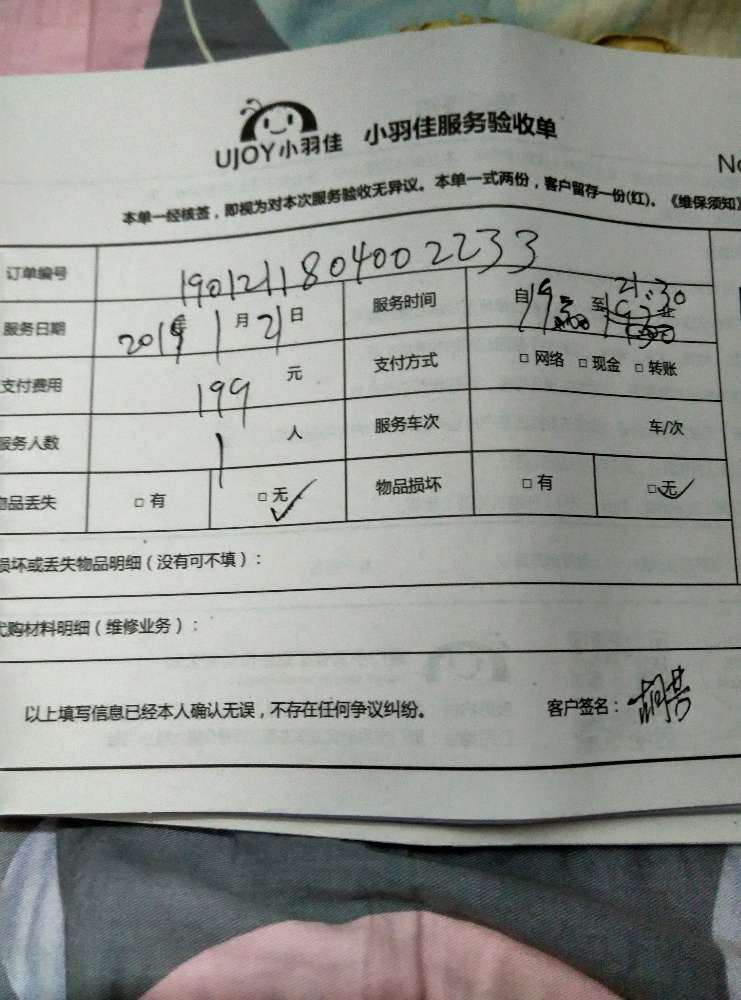 UJOY小羽佳 小羽佳服务验收单
No
本单一经核签，即视为对本次服务验收无异议。本单一式两份，客户留存一份(红)。《维保须知》
订单编号 1901211804002233
服务日期 2019年1月21日 服务时间 自19 至 21:30
支付费用 199元 支付方式 □网络 □现金 □转账
服务人数 1人 服务车次 车/次
物品丢失 □有 □无 ✓ 物品损坏 □有 □无 ✓
损坏或丢失物品明细（没有可不填）：
代购材料明细（维修业务）：
以上填写信息已经本人确认无误，不存在任何争议纠纷。 客户签名：